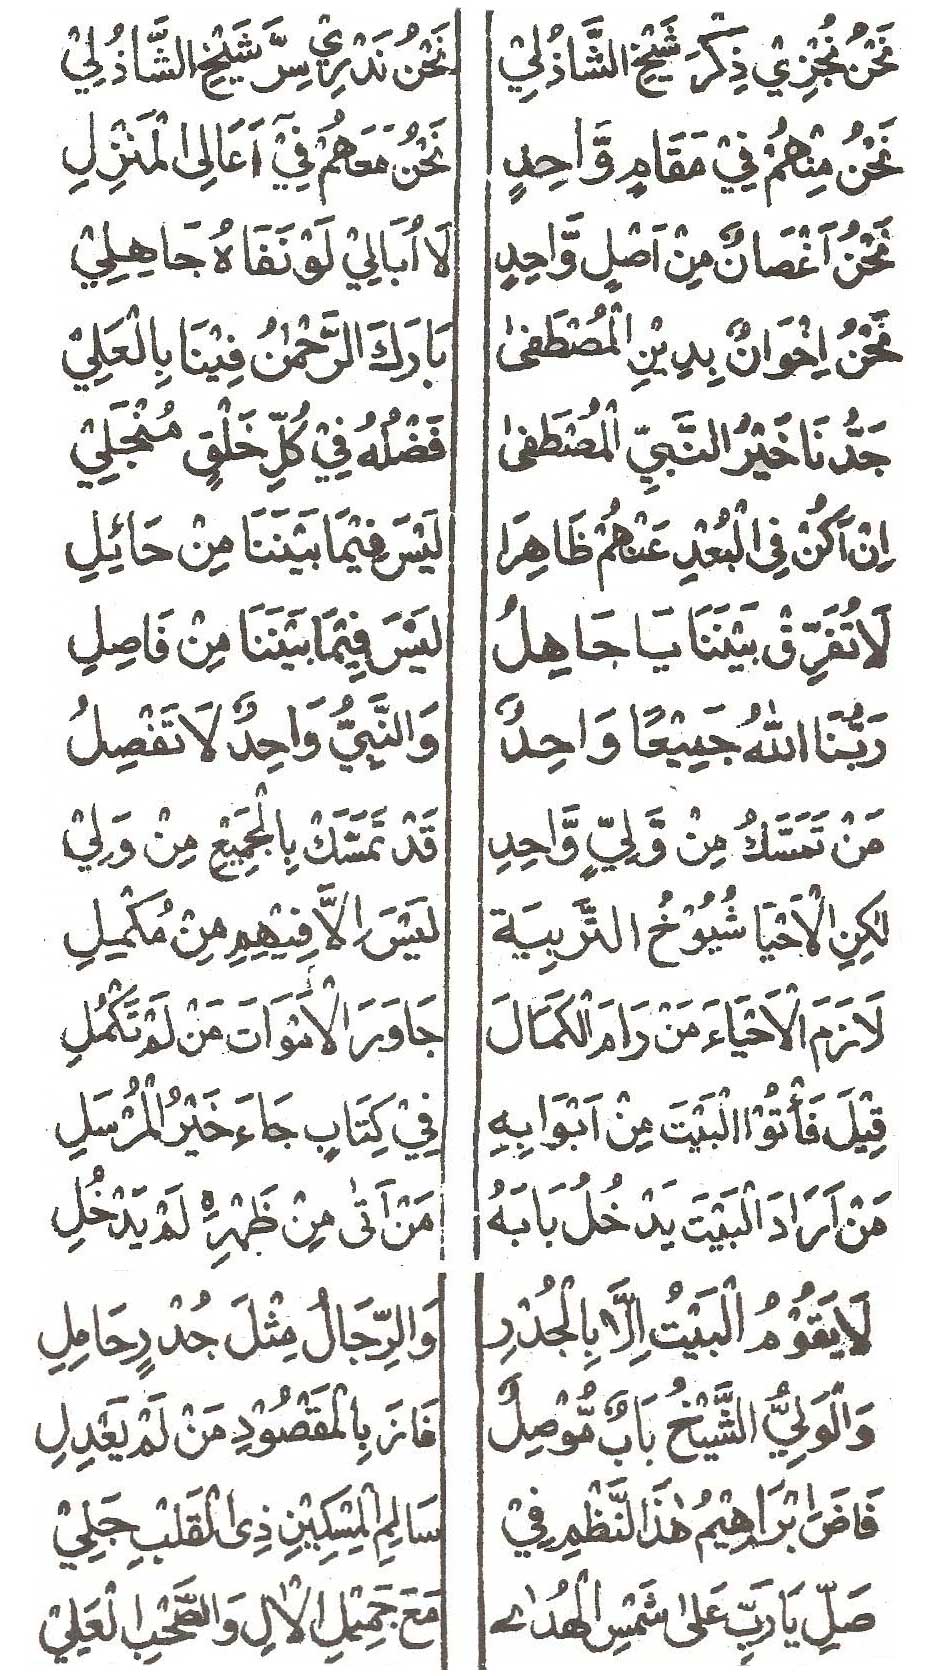 نَحْنُ نُجْزِيْ ذِكْرَ شَيْخِ الشَّاذُلِيْ نَحْنُ نَدْرِيْ سِرَّ شَيْخِ الشَّاذُلِيْ
نَحْنُ مِنْهُمْ فِيْ مَقَامٍ وَّاحِدٍ نَحْنُ مَعَهُمْ فِيْ اَعَالِى الْمَنْزِلِ
نَحْنُ اَغْصَانٌ مِنْ اَصْلٍ وَّاحِدٍ لَا اُبَالِيْ لَوْ نَفَاهُ جَاهِلِيْ
نَحْنُ اِخْوَانٌ بِدِيْنِ الْمُصْطَفٰى بَارَكَ الرَّحْمٰنُ فِيْنَا بِالْعَلِيْ
جَدُّنَا خَيْرُ النَّبِيِّ الْمُصْطَفٰى فَضْلُهُ فِيْ كُلِّ خَلْقٍ مُنْجَلِيْ
اِنْ اَكُنْ فِى الْبُعْدِ عَنْهُمْ ظَاهِرَا لَيْسَ فِيْمَا بَيْنَنَا مِنْ حَائِلِ
لَا تُفَرِّقْ بَيْنَنَا يَا جَاهِلُ لَيْسَ فِيْمَا بَيْنَنَا مِنْ فَاصِلِ
رَبُّنَا اللهُ جَمِيْعًا وَاحِدٌ وَالنَّبِيُّ وَاحِدٌ لَا تَفْصِلُ
مَنْ تَمَسَّكُ مِنْ وَّلِيٍّ وَّاحِدِ قَدْ تَمَسَّكْ بِالْجَمِيْعِ مِنْ وَلِيْ
لٰكِنِ الْاَحْيَا شُيُوْخُ التَّرْبِيَة لَيْسَ اِلَّا فِيْهِمِ مِنْ مُكْمِيلِ
لَازَمَ الْاَحْيَاءَ مَنْ رَامَ الْكَمَالَ جَاوَرَ الْأَمْوَاتَ مَنْ لَمْ تَكْمُلِ
قِيْلَ فَأْتُوْا الْبَيْتَ مِنْ اَبْوَابِهِ فِيْ كِتَابٍ جَاءَ خَيْرُ الْمُرْسَلِ
مَنْ اَرَادَ الْبَيْتَ يَدْخُلُ بَابَهُ مَنْ اَتٰى مِنْ ظَهْرِهٖ لَمْ يَدْخُلِ
لَا يَقُوْمُ الْبَيْتُ اِلَّا بِالْجُدْرِ وَالرِّجَالُ مِثْلَ جُدْرٍ حَامِلِ
وَالْوَلِيُّ الشَّيْخُ بَابٌ مُّوْصِلٌ فَازَ بِالْمَقْصُوْدِ مَنْ لَمْ يَعْدِلِ
فَاضَ اِبْرَاهِيْمُ هٰذَا النَّظْمِ فِيْ سَالِمِ الْمِسْكِيْنِ ذِى الْقَلْبِ جَلِيْ
صَلِّ يَا رَبِّ عَلٰى شَمْسِ الْهُدٰے مَعَ جَمِيْلِ الْاٰلِ وَالصَّحْبِ الْعَلِيْ